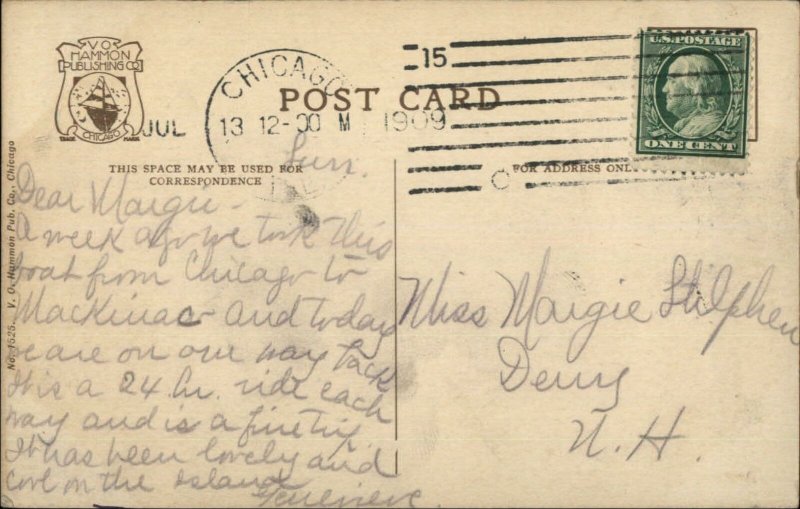 V.O.
HAMMON
PUBLISHING CO.
CHICAGO
TRADE MARK
JUL
CHICAGO
13 12-00 M
1909
15
C
U.S. POSTAGE
ONE CENT
POST CARD
THIS SPACE MAY BE USED FOR
CORRESPONDENCE
FOR ADDRESS ONL
No. 1525. V. O. Hammon Pub. Co., Chicago
Sun.
Dear Margie -
A week ago we took this
boat from Chicago to
Mackinac and today
we are on our way back
It is a 24 hr. ride each
way and is a fine trip.
It has been lovely and
cool on the island
Genevieve.
Miss Margie Stilphen
Derry
N. H.